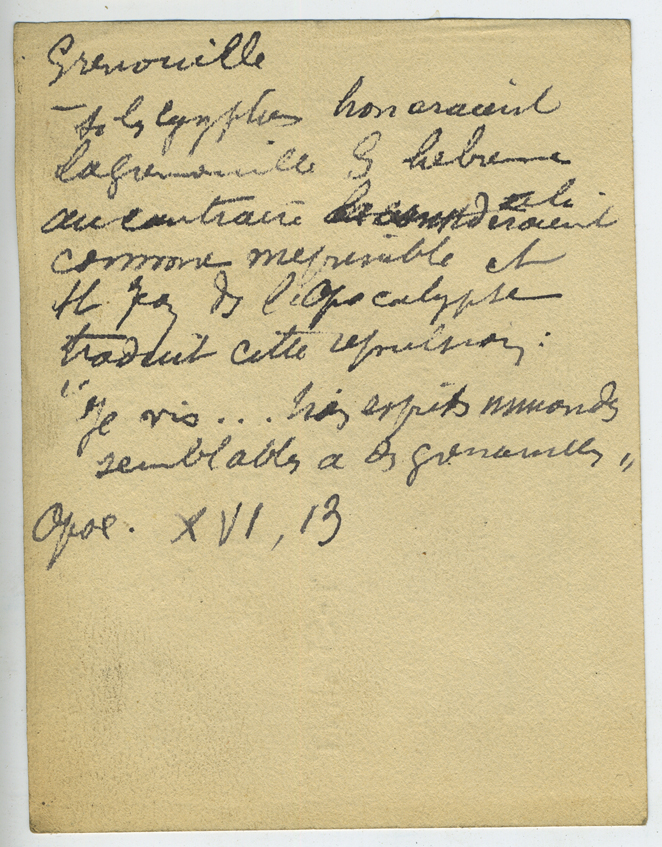 Grenouille
– Si les Egyptiens honoraient
la grenouille les hebreux
au contraire la consideraient
comme meprisible et
St Jean ds l'Apocalypse
traduit cette repulsion :
"Je vis ... trois esprits immondes
semblables a des grenouilles "
Apoc. XVI, 13